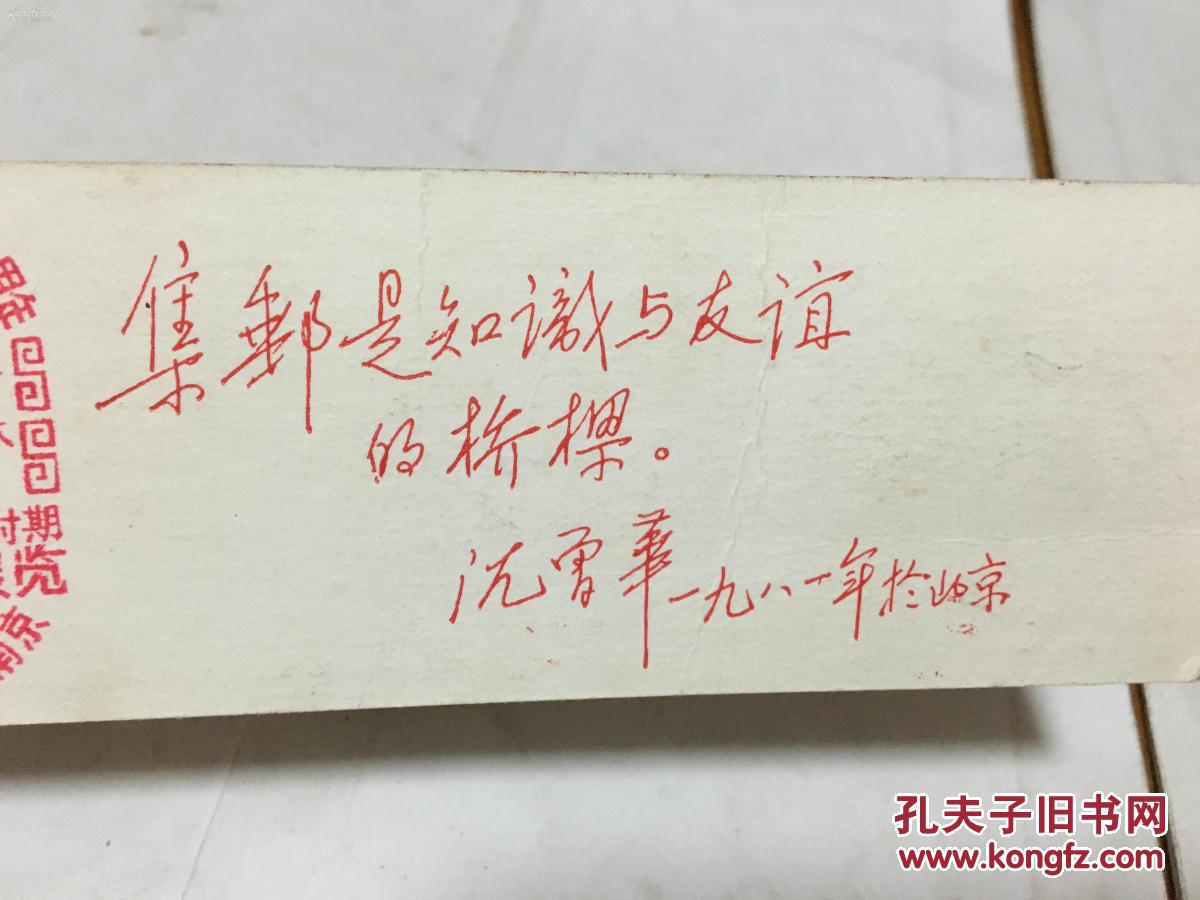 集郵是知識与友谊
的桥樑。
沈曾華 一九八一年於北京
时期
览
南京
孔夫子旧书网
www.kongfz.com